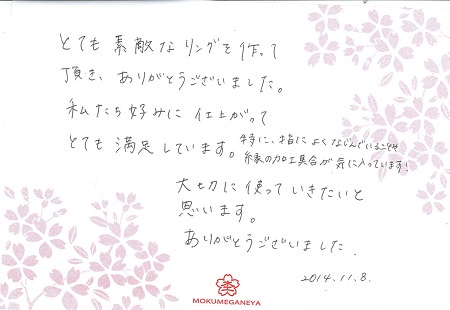 とても素敵なリングを作って
頂き、ありがとうございました。
私たち好みに仕上がって
とても満足しています。特に、指によくなじんでいることや
縁の加工具合が気に入っています!
大切に使っていきたいと
思います。
ありがとうございました.
2014.11.8.
MOKUMEGANEYA